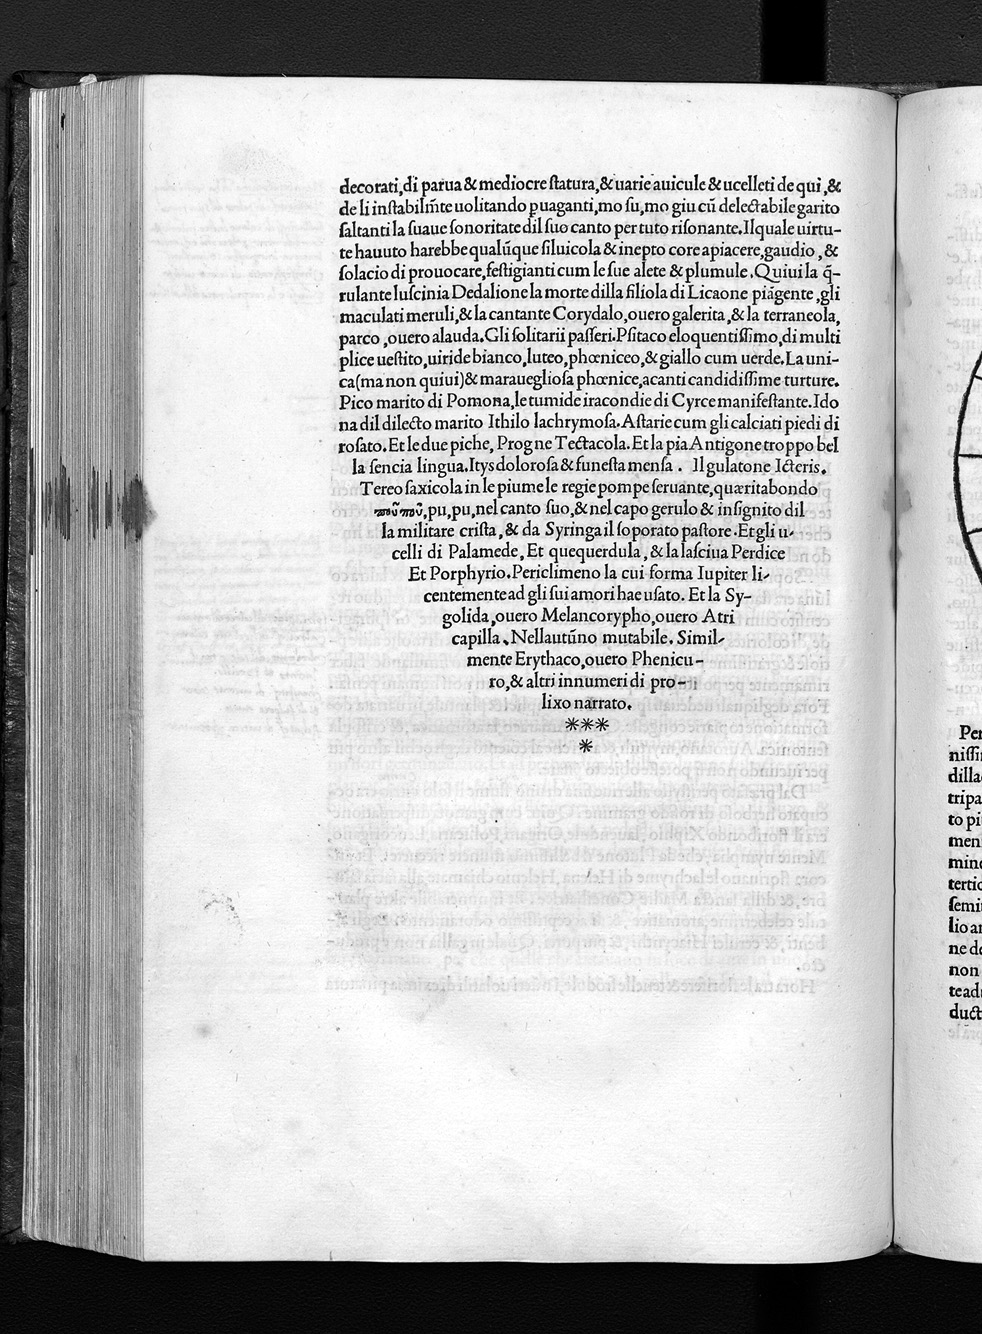 decorati,di parua & mediocre ſtatura,& uarie auicule & ucelleti de qui ,&
de li inſtabilm̃te uolitando ꝑuaganti,mo ſu,mo giu cũ delectabile garito
ſaltanti la ſuaue ſonoritate dil ſuo canto per tuto riſonante.Il quale uirtu-
te hauuto harebbe qualũque ſiluicola & inepto core apiacere,gaudio ,&
ſolacio di prouocare,feſtigianti cum le ſue alete & plumule.Quiui la q̃-
rulante luſcinia Dedalione la morte dilla filiola di Licaone piãgente ,gli
maculati meruli,& la cantante Corydalo,ouero galerita ,& la terraneola,
parco ,ouero alauda.Gli ſolitarii paſſeri.Pſitaco eloquentiſſimo,di multi
plice ueſtito,uiride bianco,luteo,phœniceo,& giallo cum uerde.La uni-
ca(ma non quiui)& marauegliosa phœnice,acanti candidiſſime turture.
Pico marito di Pomona,le tumide iracondie di Cyrce manifeſtante.Ido
na dil dilecto marito Ithilo lachrymoſa.Aſtarie cum gli calciati piedi di
roſato.Et le due piche, Progne Tectacola.Et la pia Antigone troppo bel
la ſencia lingua.Itys doloroſa & funeſta menſa . Il gulatone Icteris.
Tereo ſaxicola in le piume le regie pompe ſeruante,quæritabondo
ποῦ ποῦ,pu,pu,nel canto ſuo,& nel capo gerulo & inſignito dil
la militare criſta ,& da Syringa il ſoporato paſtore.Et gli u-
celli di Palamede, Et quequerdula ,& la laſciua Perdice
Et Porphyrio.Periclimeno la cui forma Iupiter li-
centemente ad gli ſui amori hae uſato. Et la Sy-
golida,ouero Melancorypho,ouero Atri
capilla.Nellautũno mutabile. Simil-
mente Erythaco,ouero Phenicu-
ro,& altri innumeri di pro-
lixo narrato.
***
*
Per
niſſi
dilla
tripa
to pi
men
mine
tertio
ſemi
lio a
ne de
non
tead
duct